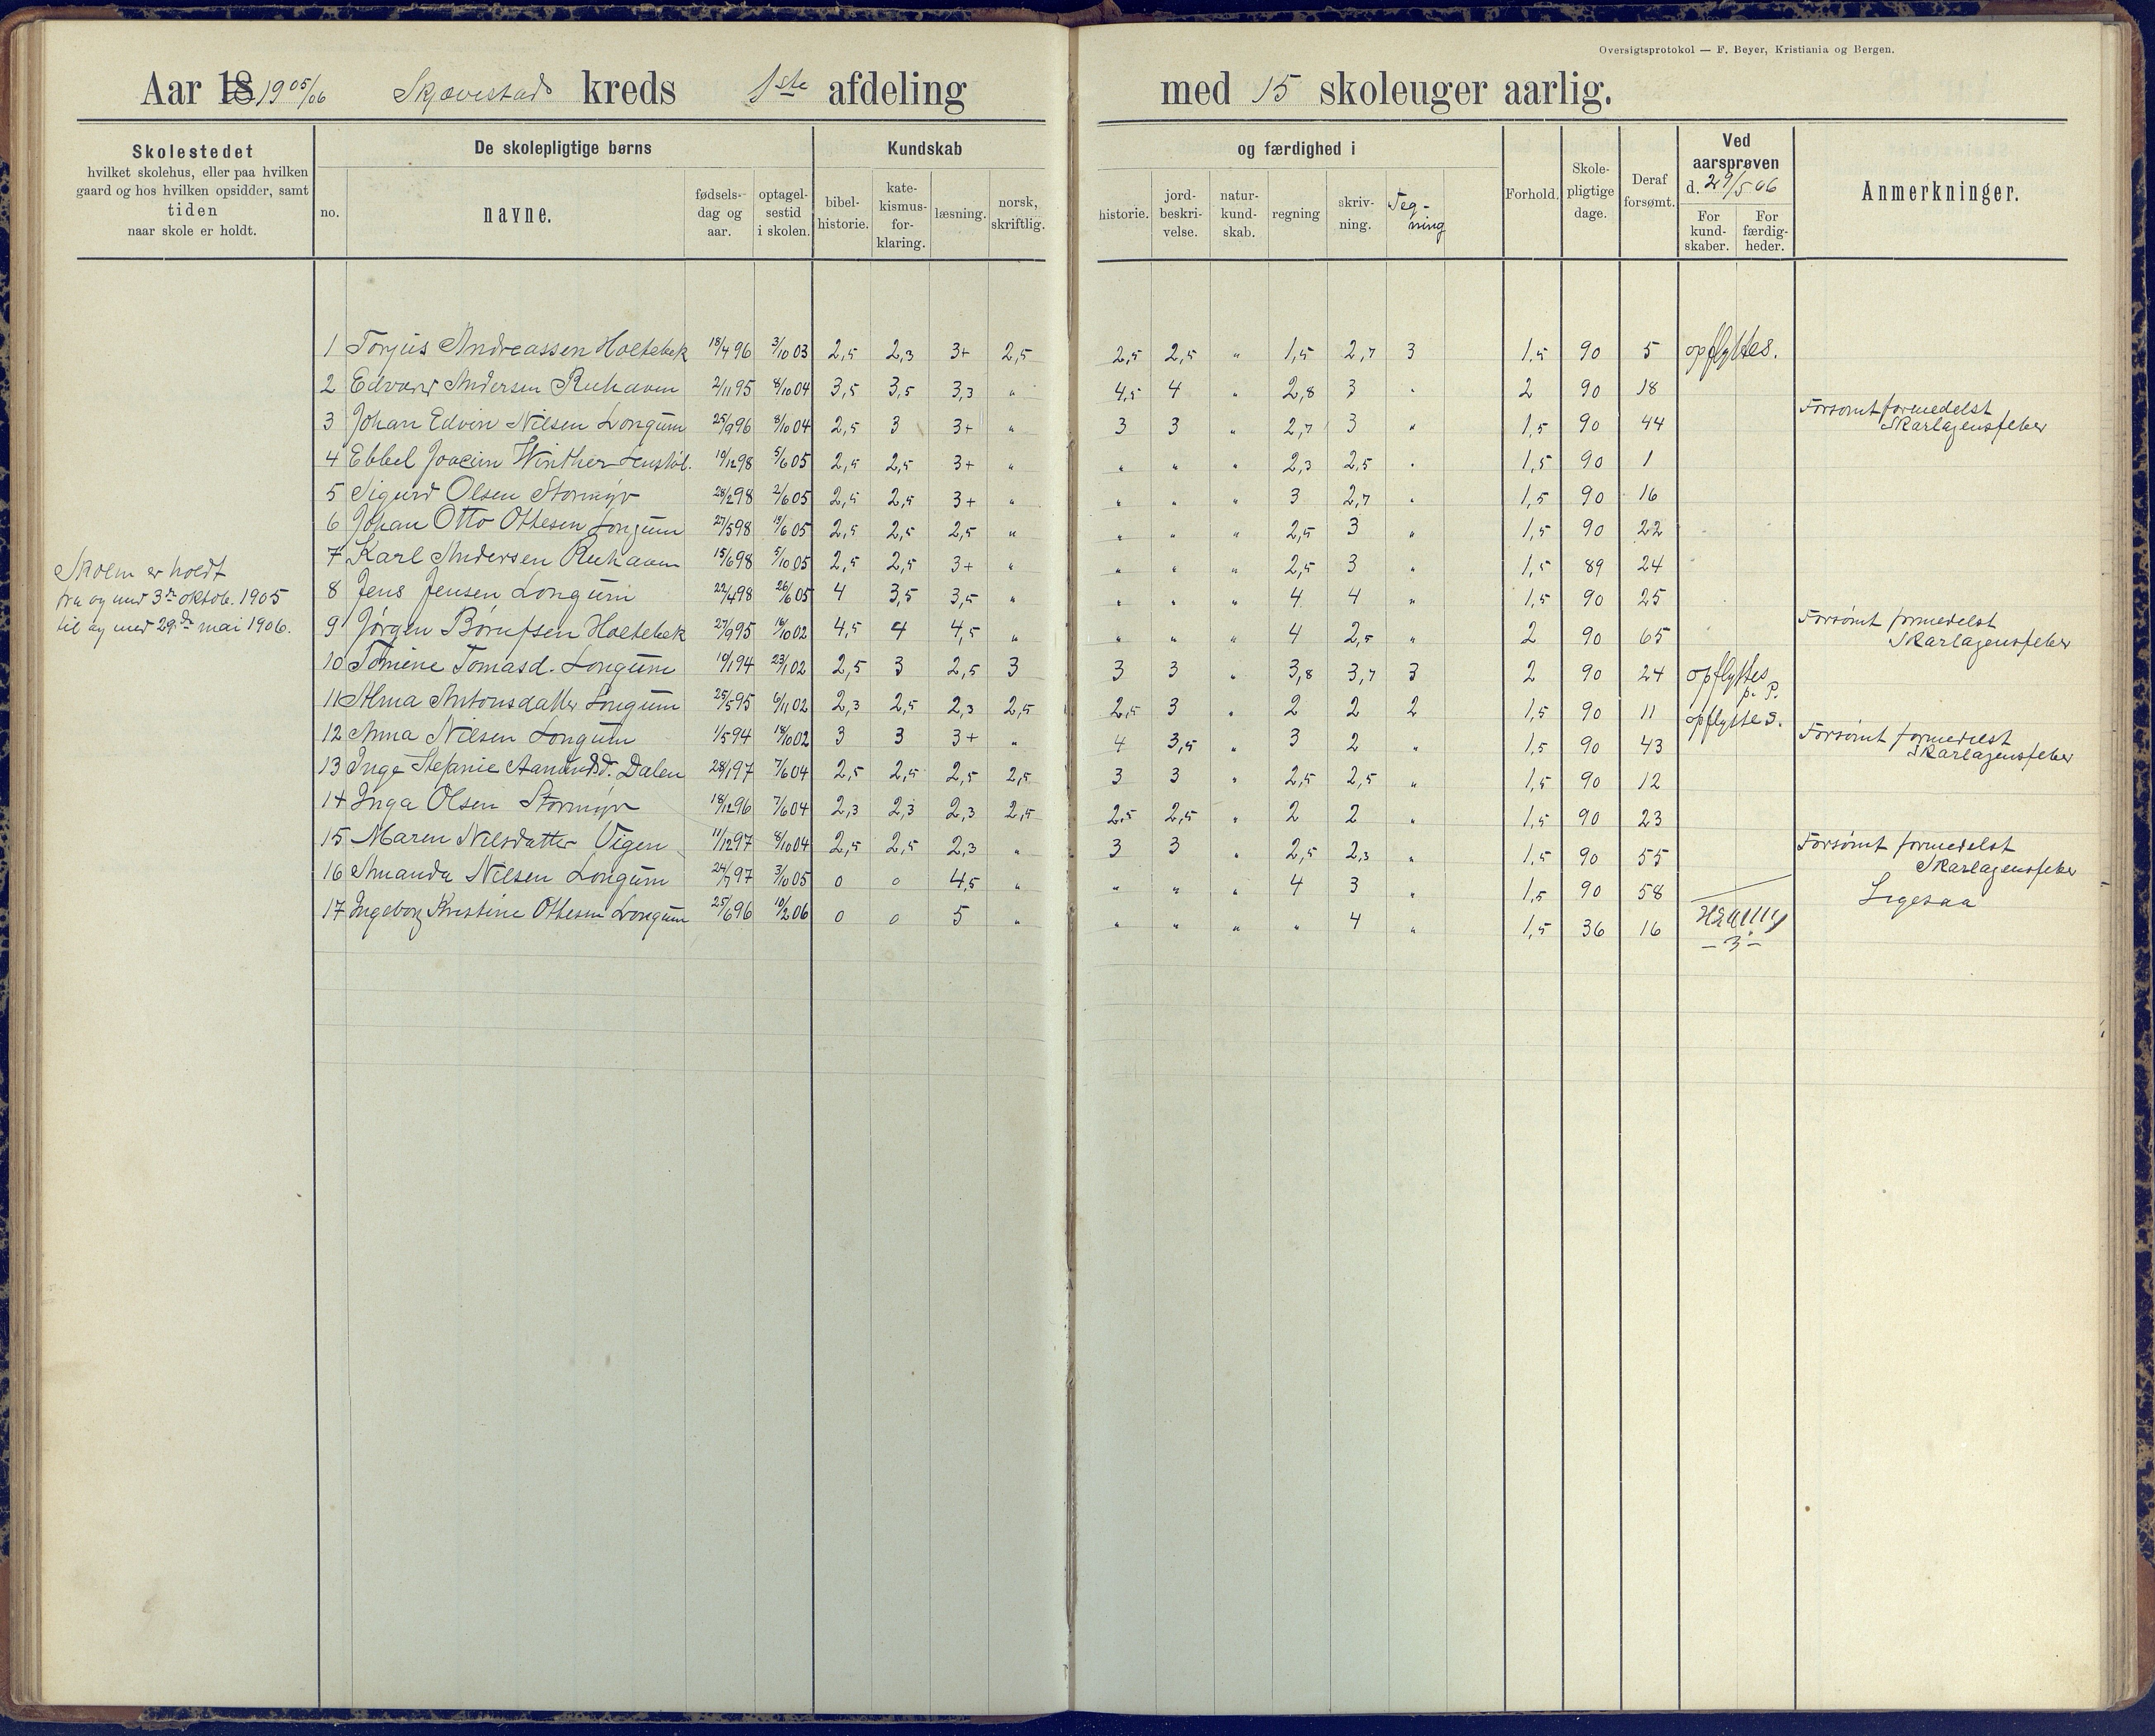 Oversigtsprotokol — F. Beyer, Kristiania og Bergen.
Aar 18 1905/06 Skjævestad kreds 1ste afdeling med 15 skoleuger aarlig.
Skolestedet
hvilket skolehus, eller paa hvilken
gaard og hos hvilken opsidder, samt
tiden
naar skole er holdt.
De skolepligtige børns
no.
navne.
fødsels-
dag og
aar.
optagel-
sestid
i skolen.
Kundskab
bibel-
historie.
kate-
kismus-
for-
klaring.
læsning.
norsk,
skriftlig.
og færdighed i
historie.
jord-
beskri-
velse.
natur-
kund-
skab.
regning
skriv-
ning.
Teg-
ning
Forhold.
Skole-
pligtige
dage.
Deraf
forsømt.
Ved
aarsprøven
d. 29/5 06
For
kund-
skaber.
For
færdig-
heder.
Anmerkninger.
Skolen er holdt
fra og med 3de oktob. 1905
til og med 29de mai 1906.
1 Torjus Andreassen Holtebek 18/4 96 3/10 03 2,5 2,3 3+ 2,5 2,5 2,5 " 1,5 2,7 3 1,5 90 5 opflyttes.
2 Edvard Andersen 2/11 95 8/10 04 3,5 3,5 3,3 " 4,5 4 " 2,8 3 " 2 90 18
3 Johan Edvin Nilsen Longum 25/9 96 8/10 04 2,5 3 3+ " 3 3 " 2,7 3 " 1,5 90 44 Forsømt formedelst
Skarlagensfeber
4 Ebbel Joacim Winther 10/12 98 5/6 05 2,5 2,5 3+ " " " " 2,3 2,5 " 1,5 90 1
5 Sigurd Olsen Stormyr 28/2 98 2/6 05 2,5 2,5 3+ " " " " 3 2,7 " 1,5 90 16
6 Johan Otto Ottesen Longum 27/5 98 19/6 05 2,5 2,5 2,5 " " " " 2,5 3 " 1,5 90 22
7 Karl Andersen 15/6 98 5/10 05 2,5 2,5 3+ " " " " 2,5 3 " 1,5 89 24
8 Jens Jensen Longum 22/4 98 26/6 05 4 3,5 3,5 " " " " 4 4 " 1,5 90 25
9 Jørgen Børufsen Holtebek 27/9 95 16/10 02 4,5 4 4,5 " " " " 4 2,5 " 2 90 65 Forsømt formedelst
Skarlagensfeber
10 Tomine Tomasd. Longum 10/1 94 23/1 02 2,5 3 2,5 3 3 3 " 3,8 3,7 3 2 90 24 opflyttes
p. P.
11 Alma Antonsdatter Longum 25/5 95 6/11 02 2,3 2,5 2,3 2,5 2,5 3 " 2 2 2 1,5 90 11 opflyttes.
12 Anna Nilsen Longum 1/5 94 18/10 02 3 3 3+ " 4 3,5 " 3 2 " 1,5 90 43 Forsømt formedelst
Skarlagensfeber
13 Inge Stefanie Aanundsd. Dalen 28/1 97 7/6 04 2,5 2,5 2,5 2,5 3 3 " 2,5 2,5 " 1,5 90 12
14 Inga Olsen Stormyr 18/12 96 7/6 04 2,3 2,3 2,3 2,5 2,5 2,5 " 2 2 " 1,5 90 23
15 Maren Nilsdatter Vigen 11/12 97 8/10 04 2,5 2,5 2,3 " 3 3 " 2,5 2,3 " 1,5 90 55 Forsømt formedelst
Skarlagensfeber
16 Amanda Nilsen Longum 24/7 97 3/10 05 0 0 4,5 " " " " 4 3 " 1,5 90 58 Ligesaa
17 Ingeborg Kristine Ottesen Longum 25/6 96 10/2 06 0 0 5 " " " " " 4 " 1,5 36 16
– 3 –